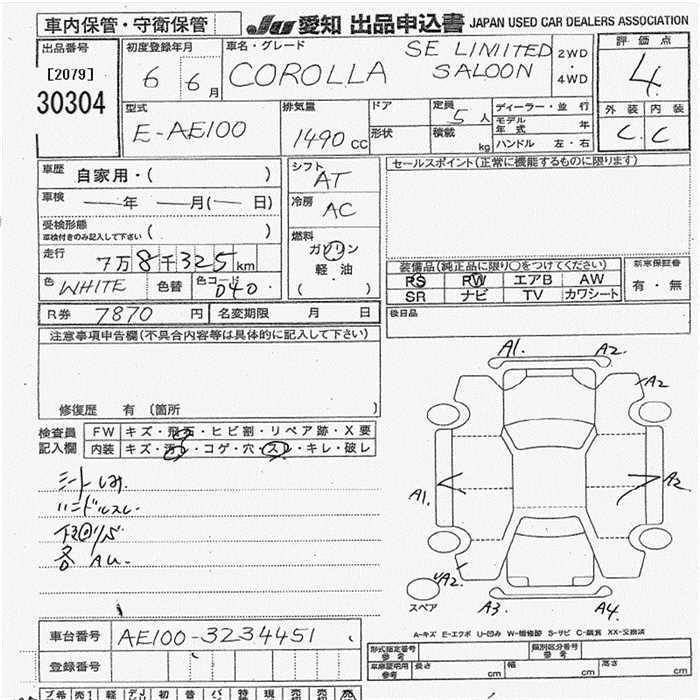 車内保管・守衛保管
JU 愛知 出品申込書 JAPAN USED CAR DEALERS ASSOCIATION
出品番号
[2079]
30304
初度登録年月
6 6月
車名・グレード
COROLLA
SE LIMITED
SALOON
2WD
・
4WD
評価点
4
外装 内装
C C
型式
E-AE100
排気量
1490 CC
ドア
形状
定員 5 人
積載 kg
ディーラー・並行
モデル年式 年
ハンドル 左・右
車歴 自家用・( )
車検 ―年 ―月(― 日)
受検形態
車検付きのみ記入して下さい ( )
走行 7万8千325km
色 WHITE 色替 色コード 040
シフト AT
冷房 AC
燃料
ガソリン
軽・油
( )
セールスポイント(正常に機能するものに限ります)
装備品(純正品に限り○をつけてください)
PS PW エアB AW
SR ナビ TV カワシート
新車保証書
有・無
後日品
R券 7870 円 名変期限 月 日
注意事項申告欄(不具合内容等は具体的に記入して下さい)
修復歴 有 〔箇所 〕
検査員
記入欄
FW キズ・飛石・ヒビ割・リペア跡・X要
内装 キズ・汚れ・コゲ・穴・スレ・キレ・破レ
シートしみ
ハンドルスレ
下回りS
各 AU
A1. A2.
A2
A1.
A2
A2
A3. A4.
スペア
A-キズ E-エクボ U-凹み W-補修跡 S-サビ C-腐食 XX-交換済
車台番号 AE100-3234451
登録番号
形式指定番号
参考
類別区分番号
参考
車庫証明用
参考
長さ cm 幅 cm 高さ cm